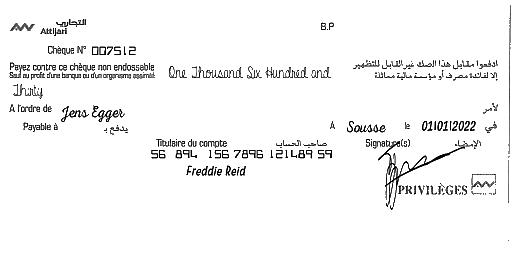 التجاري
Attijari
B.P
Chèque N° 007512
Payez contre ce chèque non endossable
Sauf au profit d'une banque ou d'un organisme assimilé
One Thousand Six Hundred and
ادفعوا مقابل هذا الصك غير القابل للتظهير
إلا لفائدة مصرف أو مؤسسة مالية مماثلة
Thirty
A l'ordre de Jens Egger لأمر
Payable à يدفع بـ
A Sousse le 01/01/2022 في
Titulaire du compte صاحب الحساب Signature(s) الإمضاء
56 894 156 7896 121489 59
Freddie Reid
PRIVILÈGES